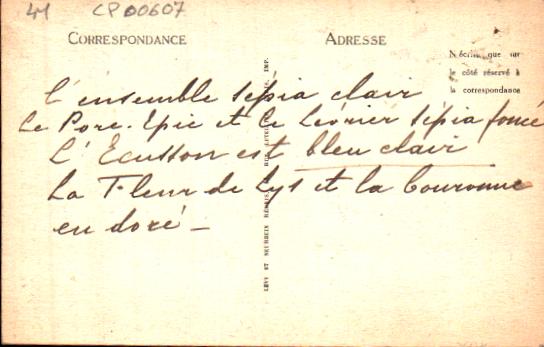 41 CP00607
CORRESPONDANCE
ADRESSE
N'écrire que sur
le côté réservé à
la correspondance
L'ensemble sépia clair
Le Porc-Epic et le Lévrier sépia foncé
L'Ecusson est bleu clair
La Fleur de Lys et la Couronne
en doré —
LÉVY ET NEURDEIN RÉUNIS IMP.